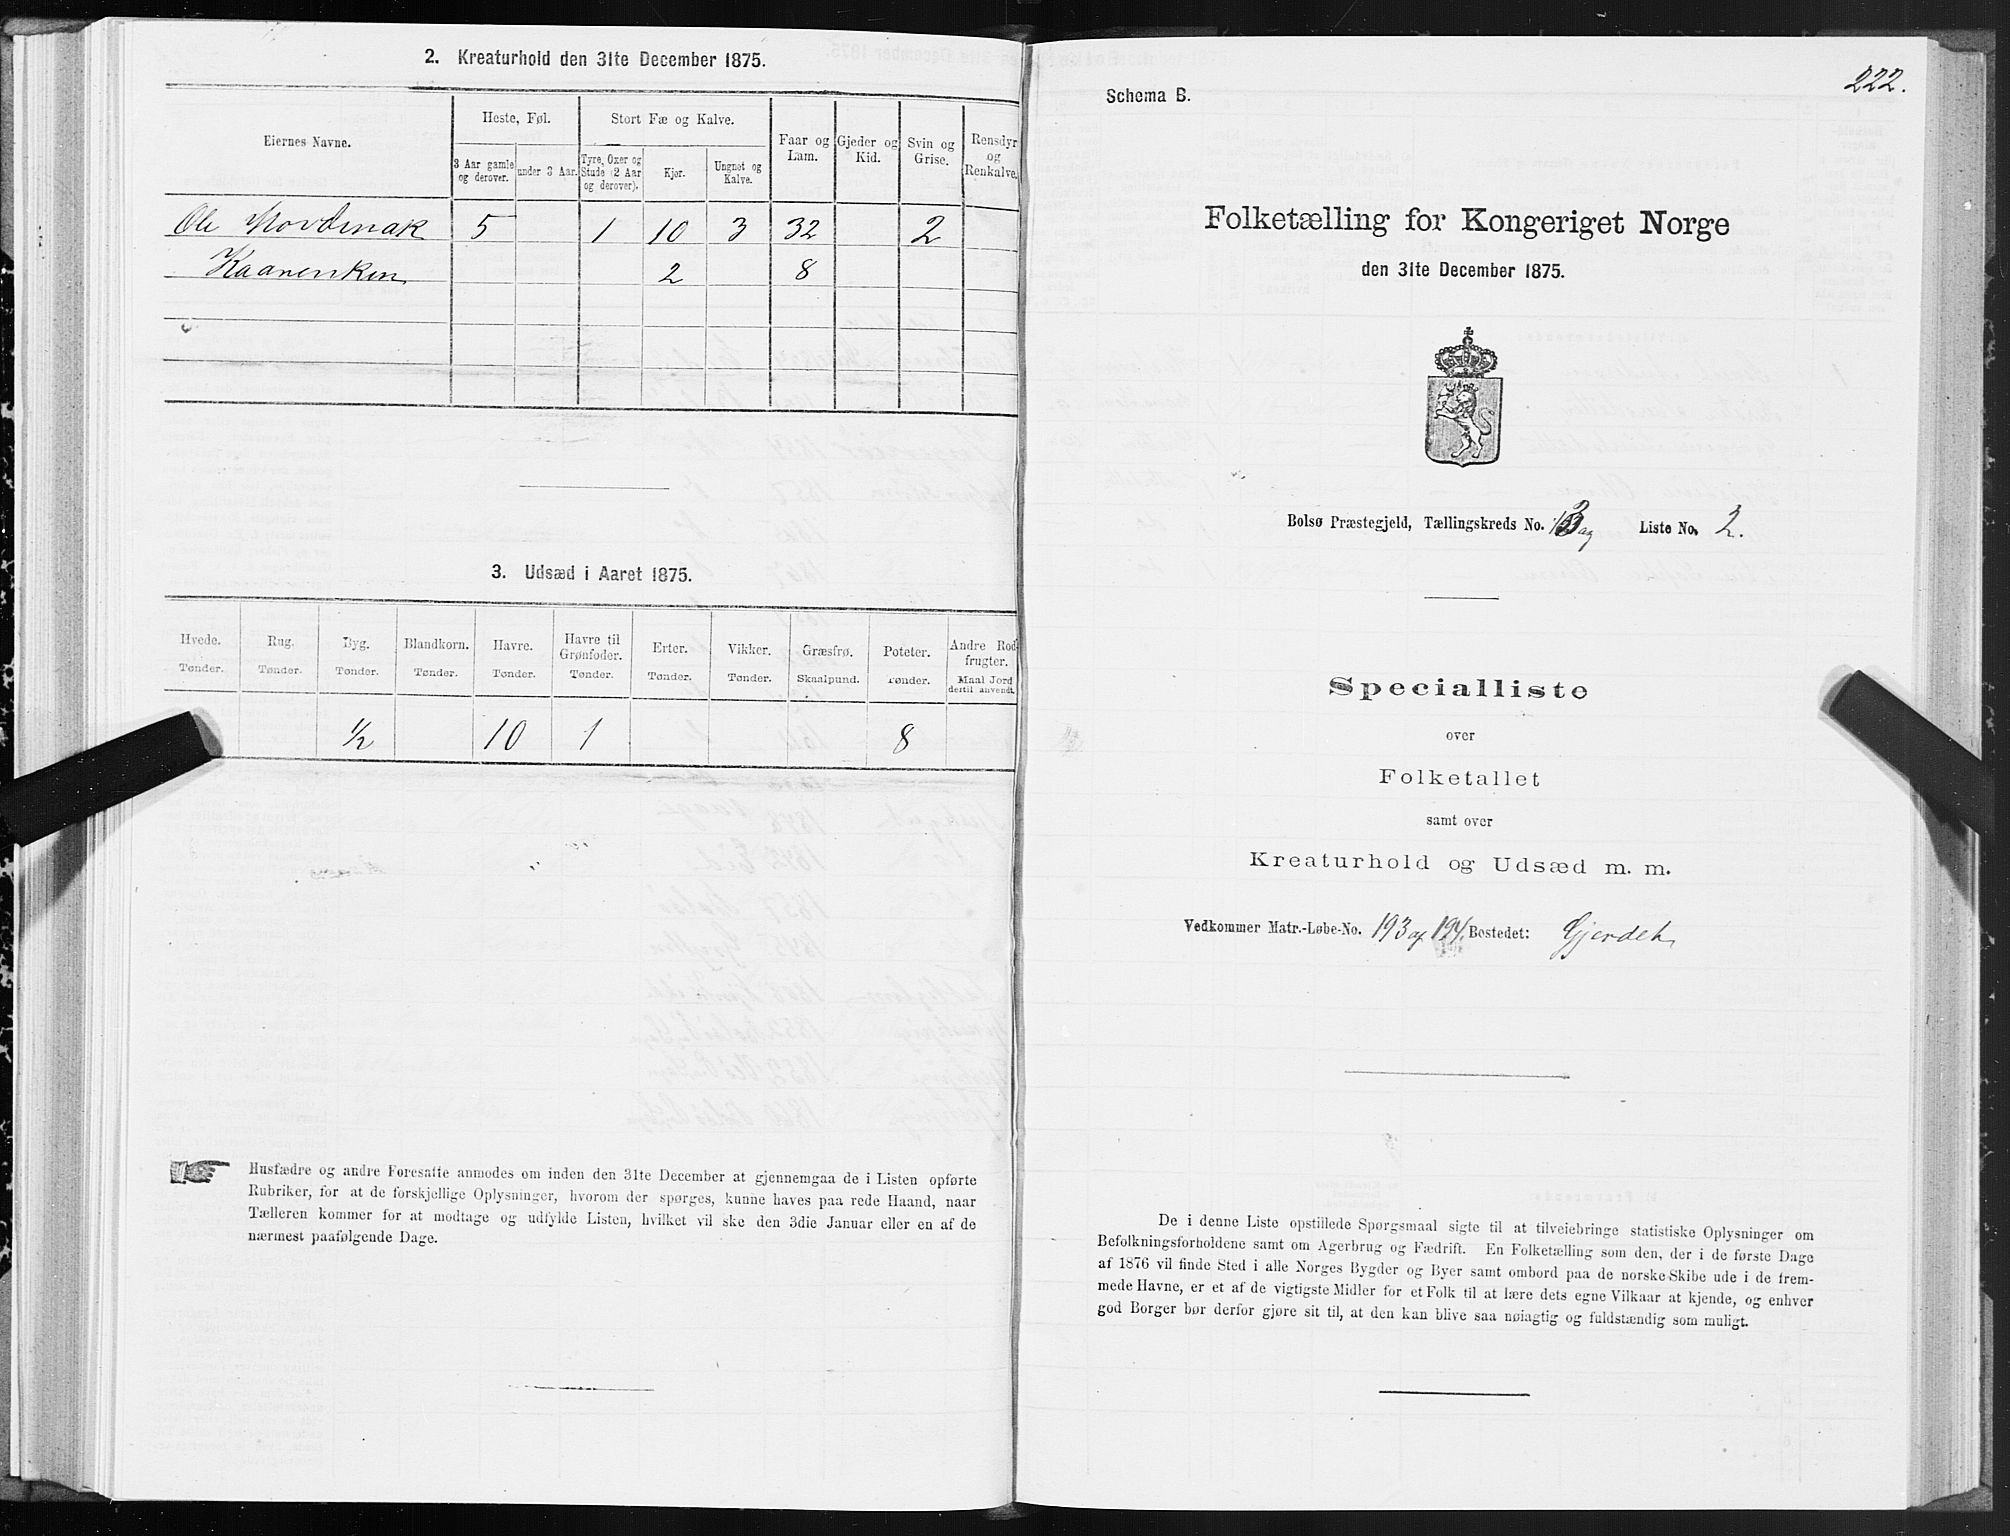 2. Kreaturhold den 31te December 1875.
Eiernes Navne.
Heste, Føl.
Stort Fæ og Kalve.
Faar og Lam.
Gjeder og Kid.
Svin og Grise.
Rensdyr og Renkalve.
3 Aar gamle og derover.
under 3 Aar.
Tyre, Oxer og Stude (2 Aar og derover).
Kjør.
Ungnøt og Kalve.
Ole 5 1 10 3 32 2
2 8
3. Udsæd i Aaret 1875.
Hvede. Rug. Byg. Blandkorn. Havre. Havre til Grønfoder. Erter. Vikker. Græsfrø. Poteter. Andre Rodfrugter.
Tønder. Tønder. Tønder. Tønder. Tønder. Tønder. Tønder. Tønder. Skaalpund. Tønder. Maal Jord dertil anvendt.
½ 10 1 8
Husfædre og andre Foresatte anmodes om inden den 31te December at gjennemgaa de i Listen opførte
Rubriker, for at de forskjellige Oplysninger, hvorom der spørges, kunne haves paa rede Haand, naar
Tælleren kommer for at modtage og udfylde Listen, hvilket vil ske den 3die Januar eller en af de
nærmest paafølgende Dage.
222.
Schema B.
Folketælling for Kongeriget Norge
den 31te December 1875.
Bolsø Præstegjeld, Tællingskreds No. Liste No. 2.
Specialliste
over
Folketallet
samt over
Kreaturhold og Udsæd m. m.
Vedkommer Matr.-Løbe-No. 193 og 194. Bostedet: Gjerdet
De i denne Liste opstillede Spørgsmaal sigte til at tilveiebringe statistiske Oplysninger om
Befolkningsforholdene samt om Agerbrug og Fædrift. En Folketælling som den, der i de første Dage
af 1876 vil finde Sted i alle Norges Bygder og Byer samt ombord paa de norske Skibe ude i de frem-
mede Havne, er et af de vigtigste Midler for et Folk til at lære dets egne Vilkaar at kjende, og enhver
god Borger bør derfor gjøre sit til, at den kan blive saa nøiagtig og fuldstændig som muligt.